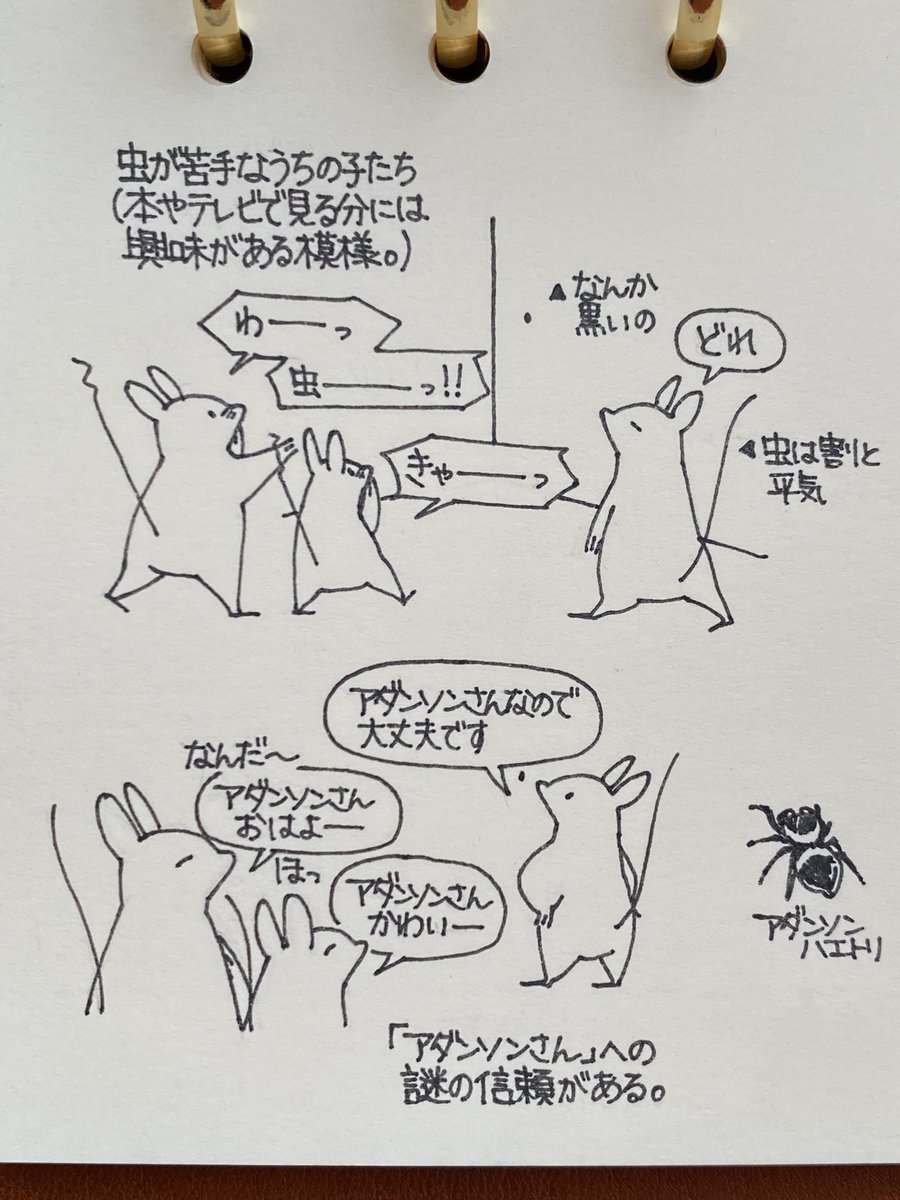 虫が苦手なうちの子たち
(本やテレビで見る分には
興味がある模様。)
わーーっ
虫ーーーっ!!
▲なんか
黒いの
どれ
きゃーーっ
◀虫は割りと
平気
アダンソンさんなので
大丈夫です
なんだ～
アダンソンさん
おはよー
ほっ
アダンソンさん
かわいー
アダンソン
ハエトリ
「アダンソンさん」への
謎の信頼がある。